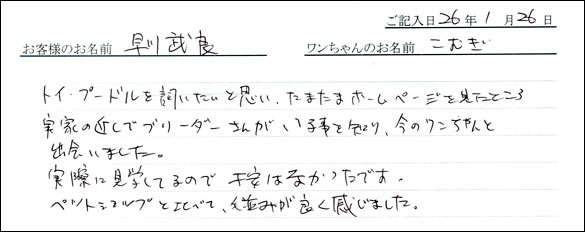 ご記入日 26年 1月 26日
お客様のお名前 早川武良 ワンちゃんのお名前 こむぎ
トイ・プードルを飼いたいと思い、たまたまホームページを見たところ
実家の近くでブリーダーさんがいる事を知り、今のワンちゃんと
出会いました。
実際に見学してるので不安はなかったです。
ペットショップと比べて、毛並みが良く感じました。